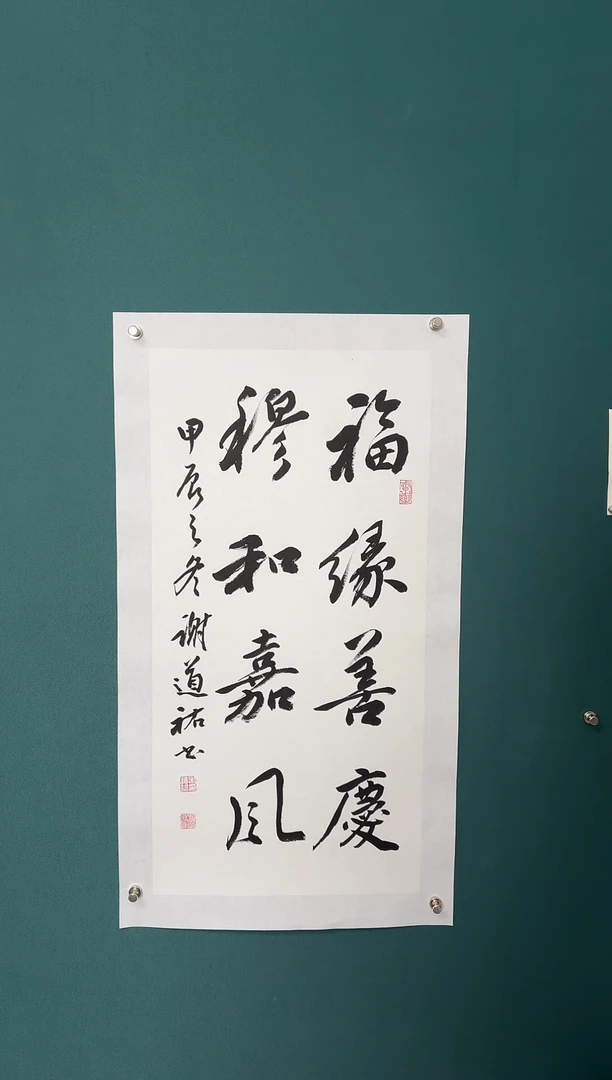 福緣善慶
穆和嘉風
甲辰之冬謝道祐书